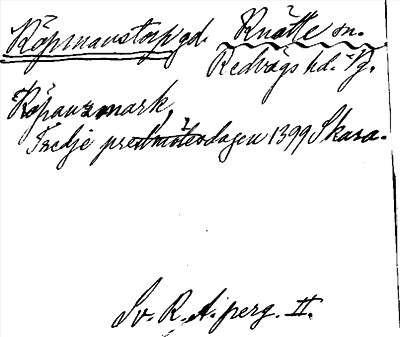 Köpmanstorp gd. Knätte sn.
Redvägs hd. Vg.
Köpanzmark,
Tredje predmötesdagen 1399 Skara.
Sv. R. A. perg. II.